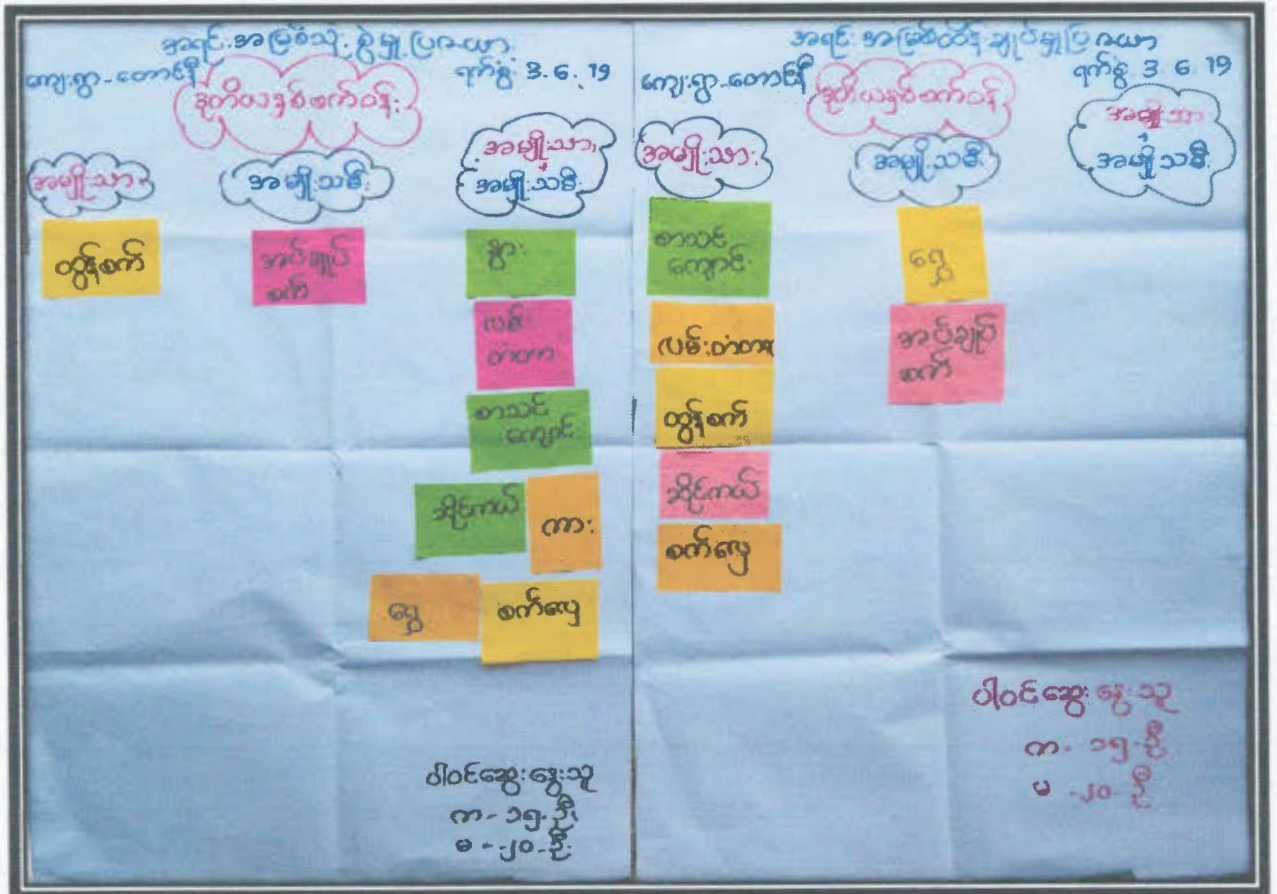 အရင်းအမြစ်သုံးစွဲမှုပြဇယား
ကျေးရွာ-တောင်နီ
ရက်စွဲ 3.6.19
ဒုတိယနှစ်စက်ဝန်း
အမျိုးသား
အမျိုးသမီး
အမျိုးသား၊
အမျိုးသမီး
ထွန်စက်
အပ်ချုပ်
စက်
နွား
လမ်း
တံတား
စာသင်
ကျောင်း
ဆိုင်ကယ်
ကား
ရွှေ
စက်လှေ
ပါဝင်ဆွေးနွေးသူ
က - ၁၅-ဦး
မ - ၂၀-ဦး
အရင်းအမြစ်ထိန်းချုပ်မှုပြဇယား
ကျေးရွာ-တောင်နီ
ရက်စွဲ 3.6.19
ဒုတိယနှစ်စက်ဝန်း
အမျိုးသား
အမျိုးသမီး
အမျိုးသား
+
အမျိုးသမီး
စာသင်
ကျောင်း
လမ်း၊တံတား
ထွန်စက်
ဆိုင်ကယ်
စက်လှေ
ရွှေ
အပ်ချုပ်
စက်
ပါဝင်ဆွေးနွေးသူ
က - ၁၅-ဦး
မ - ၂၀-ဦး